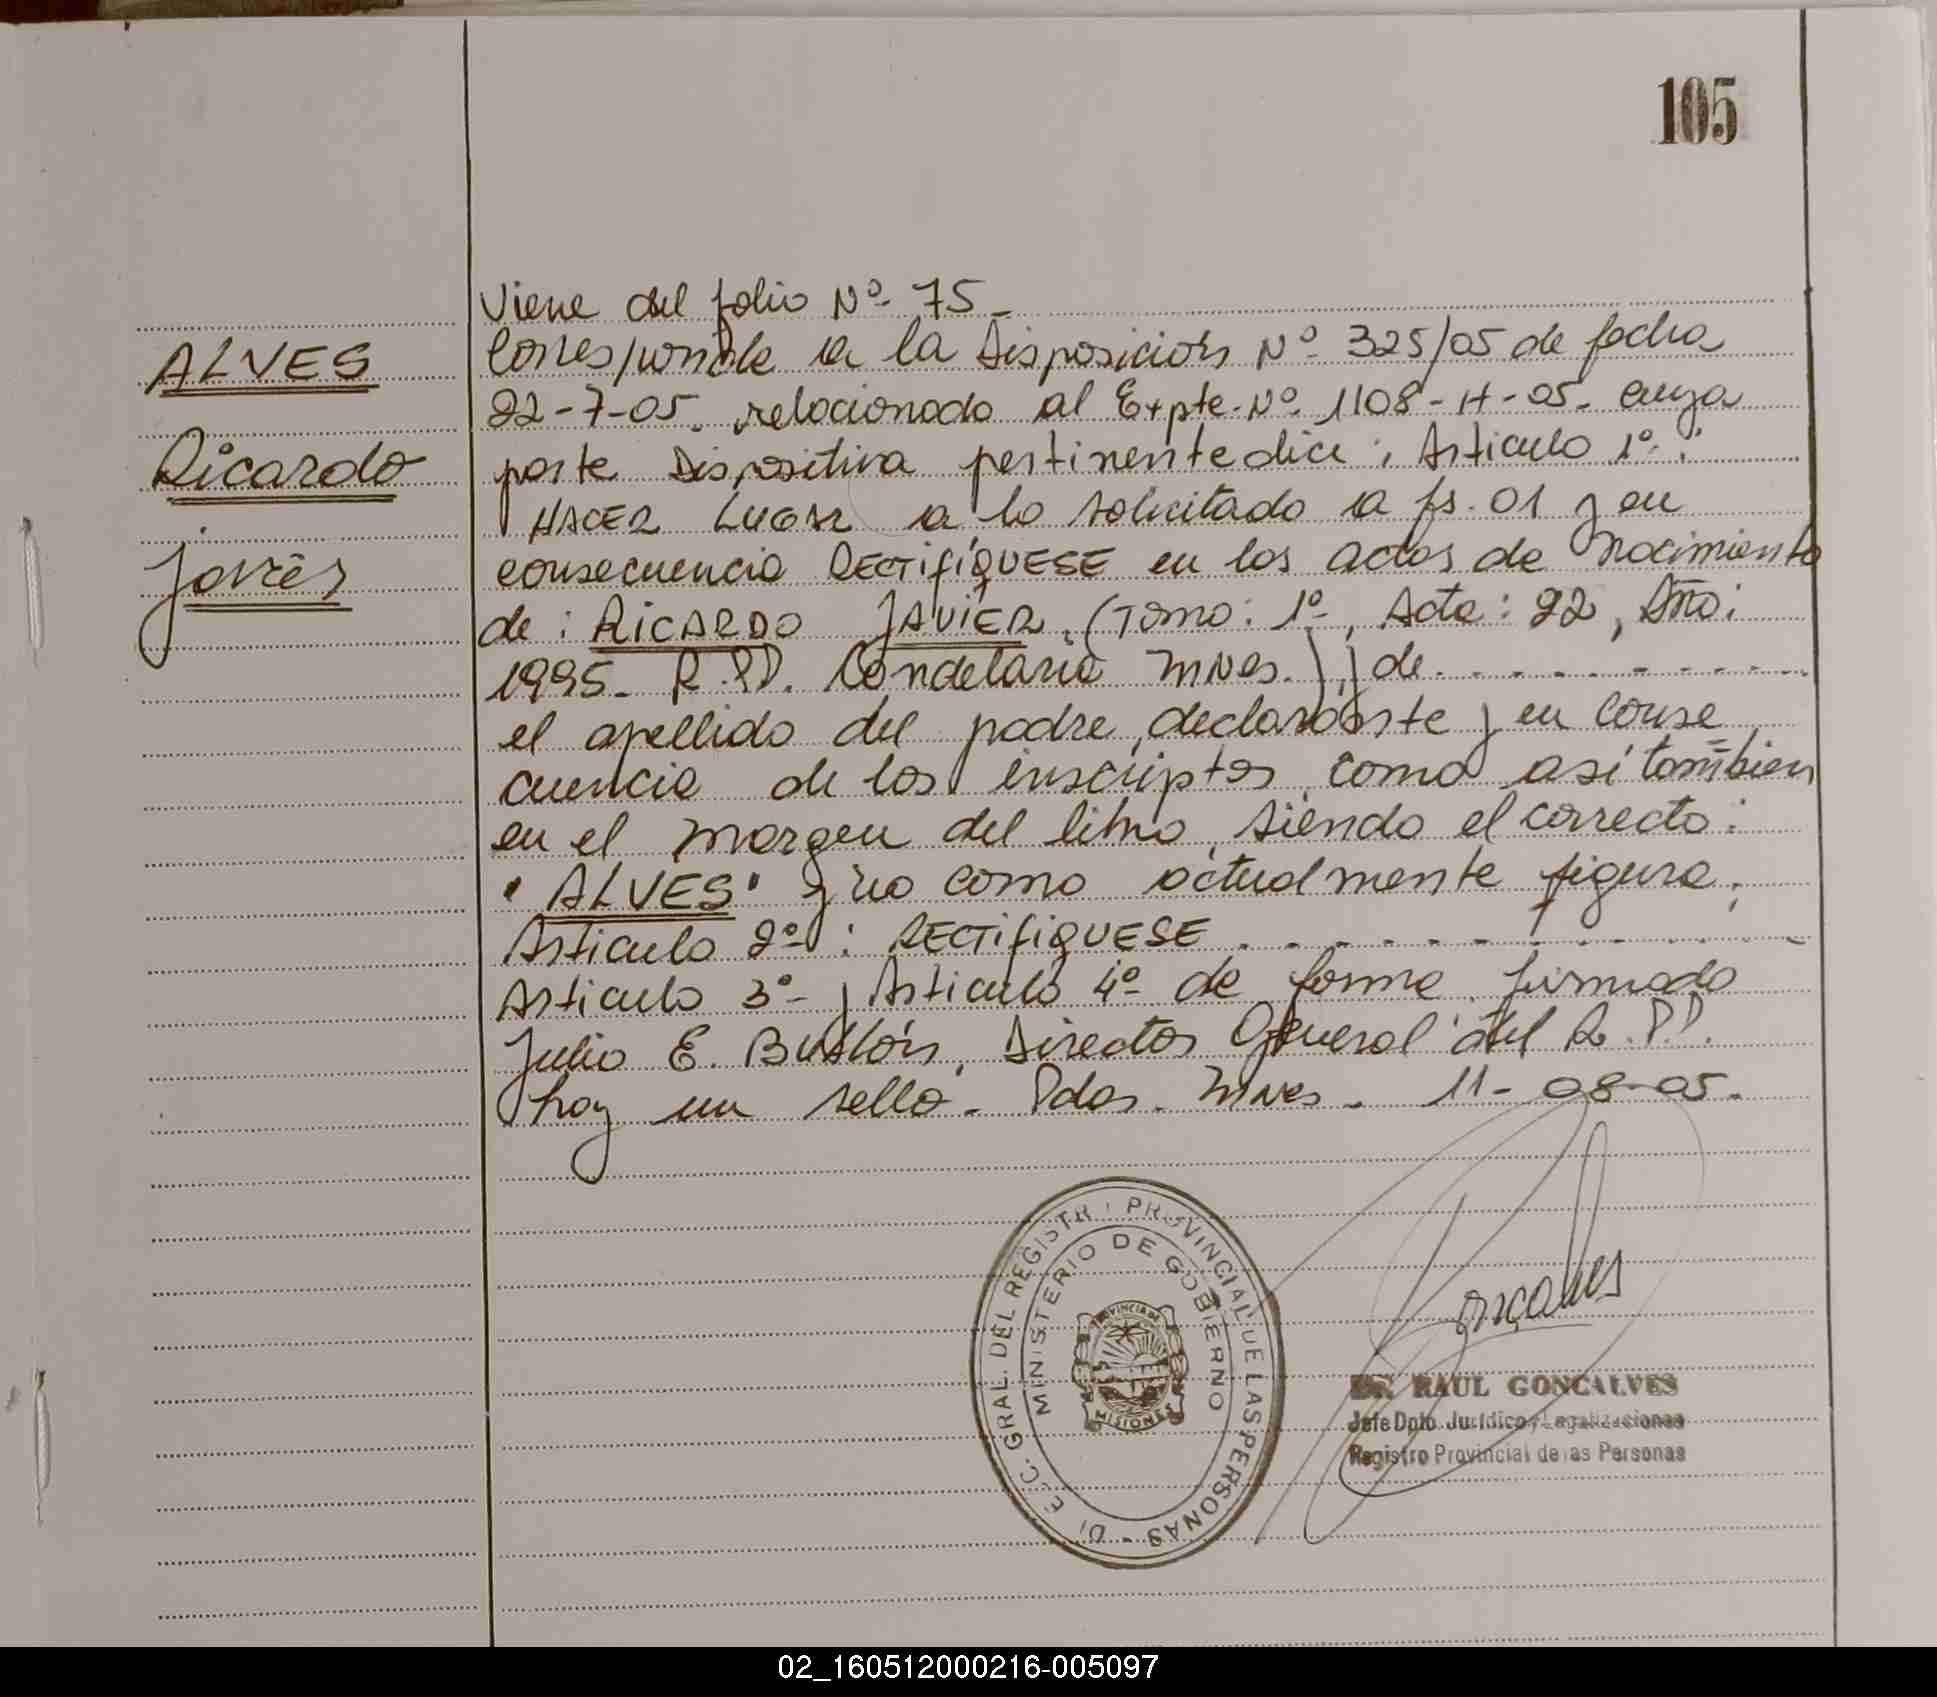 105
ALVES
Ricardo
Javier
Viene del folio Nº 75
Corresponde a la Disposición Nº 325/05 de fecha
22-7-05. relacionado al Expte. Nº 1108-H-05. cuya
parte Dispositiva pertinente dice: Articulo 1º:
HACER LUGAR a lo solicitado a fs. 01 y en
consecuencia RECTIFÍQUESE en las actas de nacimiento
de: RICARDO JAVIER, (Tomo: 1º, Acta: 22, Año:
1995- R.P.P. Candelaria Mnes.), y de - - - - - - - - -
el apellido del padre, declarante y en conse
cuencia de los inscriptos, como así también
en el margen del libro, siendo el correcto:
"ALVES" y no como actualmente figura.
Articulo 2º: RECTIFIQUESE - - - - - - - - - - - -
Articulo 3º y Articulo 4º de forma. firmado
Julio E. Director General del R.P.P.
hay un sello. Pdas. Mnes. 11-08-05.
DIRECC. GRAL. DEL REGISTRO PROVINCIAL DE LAS PERSONAS -
MINISTERIO DE GOBIERNO
PROVINCIA DE
MISIONES
Gonçalves
Dr. RAUL GONCALVES
Jefe Dpto. Jurídico y Legalizaciones
Registro Provincial de las Personas
02_160512000216-005097